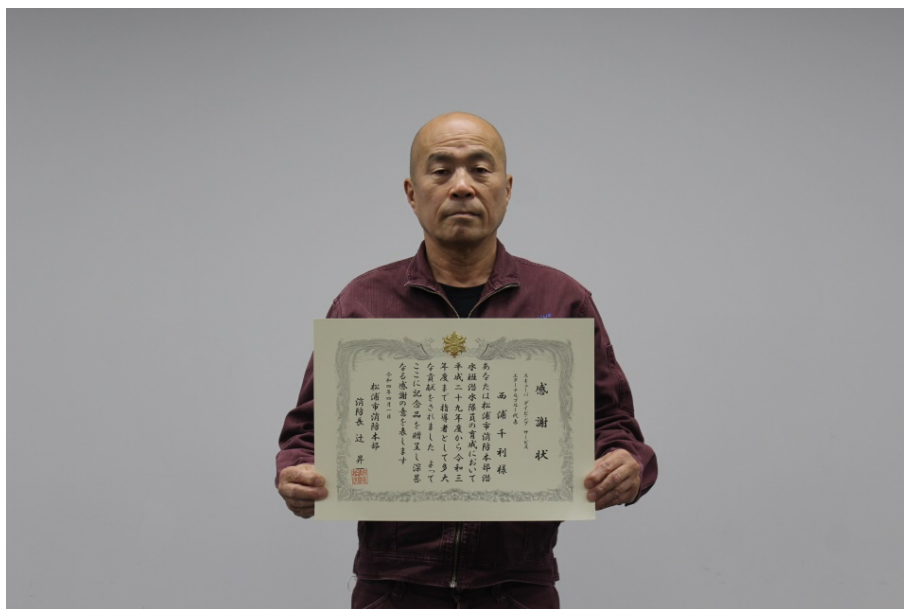 感謝状
スキューバダイビングサービス
エターナルブルー代表
西浦千利様
あなたは松浦市消防本部潜
水班潜水隊員の育成において
平成二十九年度から令和三
年度まで指導者として多大
な貢献をされました よって
ここに記念品を贈呈し深甚
なる感謝の意を表します
令和四年四月一日
松浦市消防本部
消防長 辻 昇